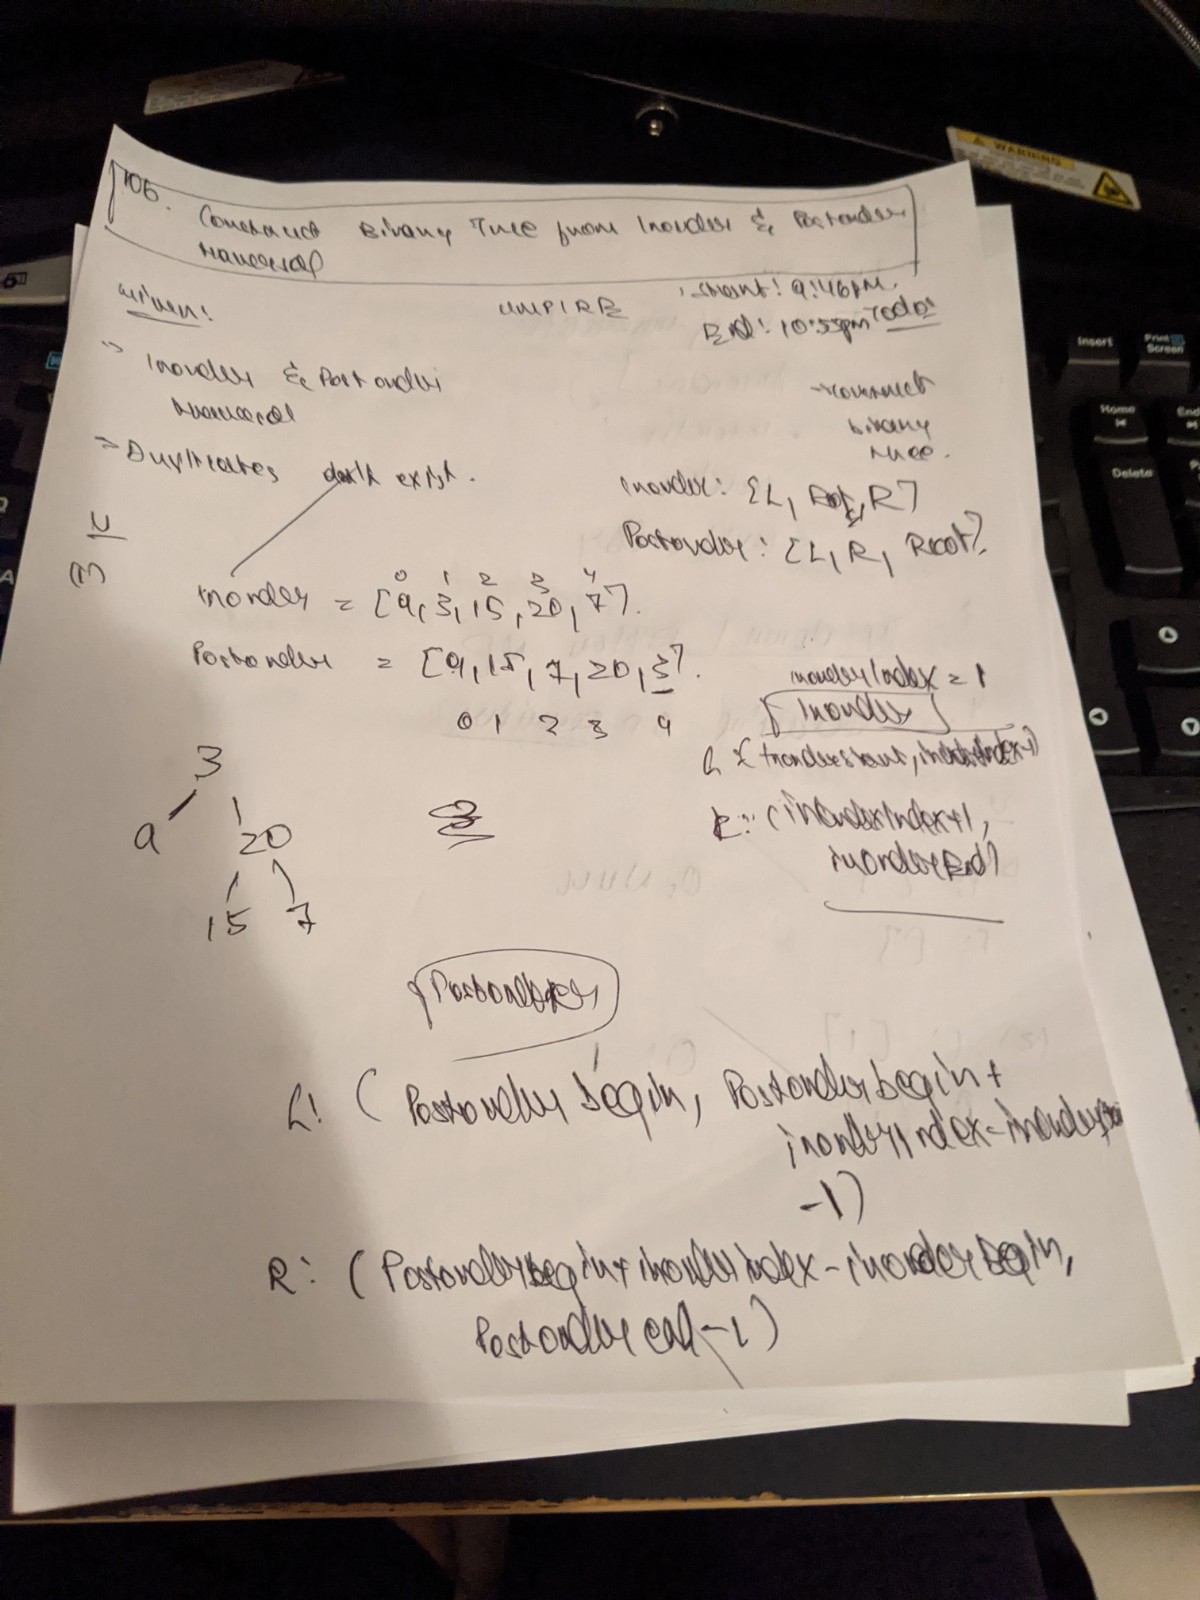 106. Construct Binary Tree from Inorder & Postorder
traversal
Given:
UMPIRE
Start: 9:46pm
End: 10:55pm
Todo:
Inorder & Postorder
traversal
construct
binary
tree.
=> Duplicates don't exist.
Inorder: [L, Root, R]
Postorder: [L, R, Root]
0 1 2 3 4
inorder = [9, 3, 15, 20, 7].
Postorder = [9, 15, 7, 20, 3].
0 1 2 3 4
inorderIndex = 1
Inorder
L: (inorderstart, inorderIndex-1)
R: (inorderIndex+1,
inorderEnd)
3
9 20
15 7
Postorder
L: (Postorder begin, Postorderbegin +
inorderIndex - inorder
-1)
R: (Postorderbegin + inorderIndex - inorderBegin,
Postorder end -1)
WARNING
Insert
Print
Screen
Home
End
Delete
A